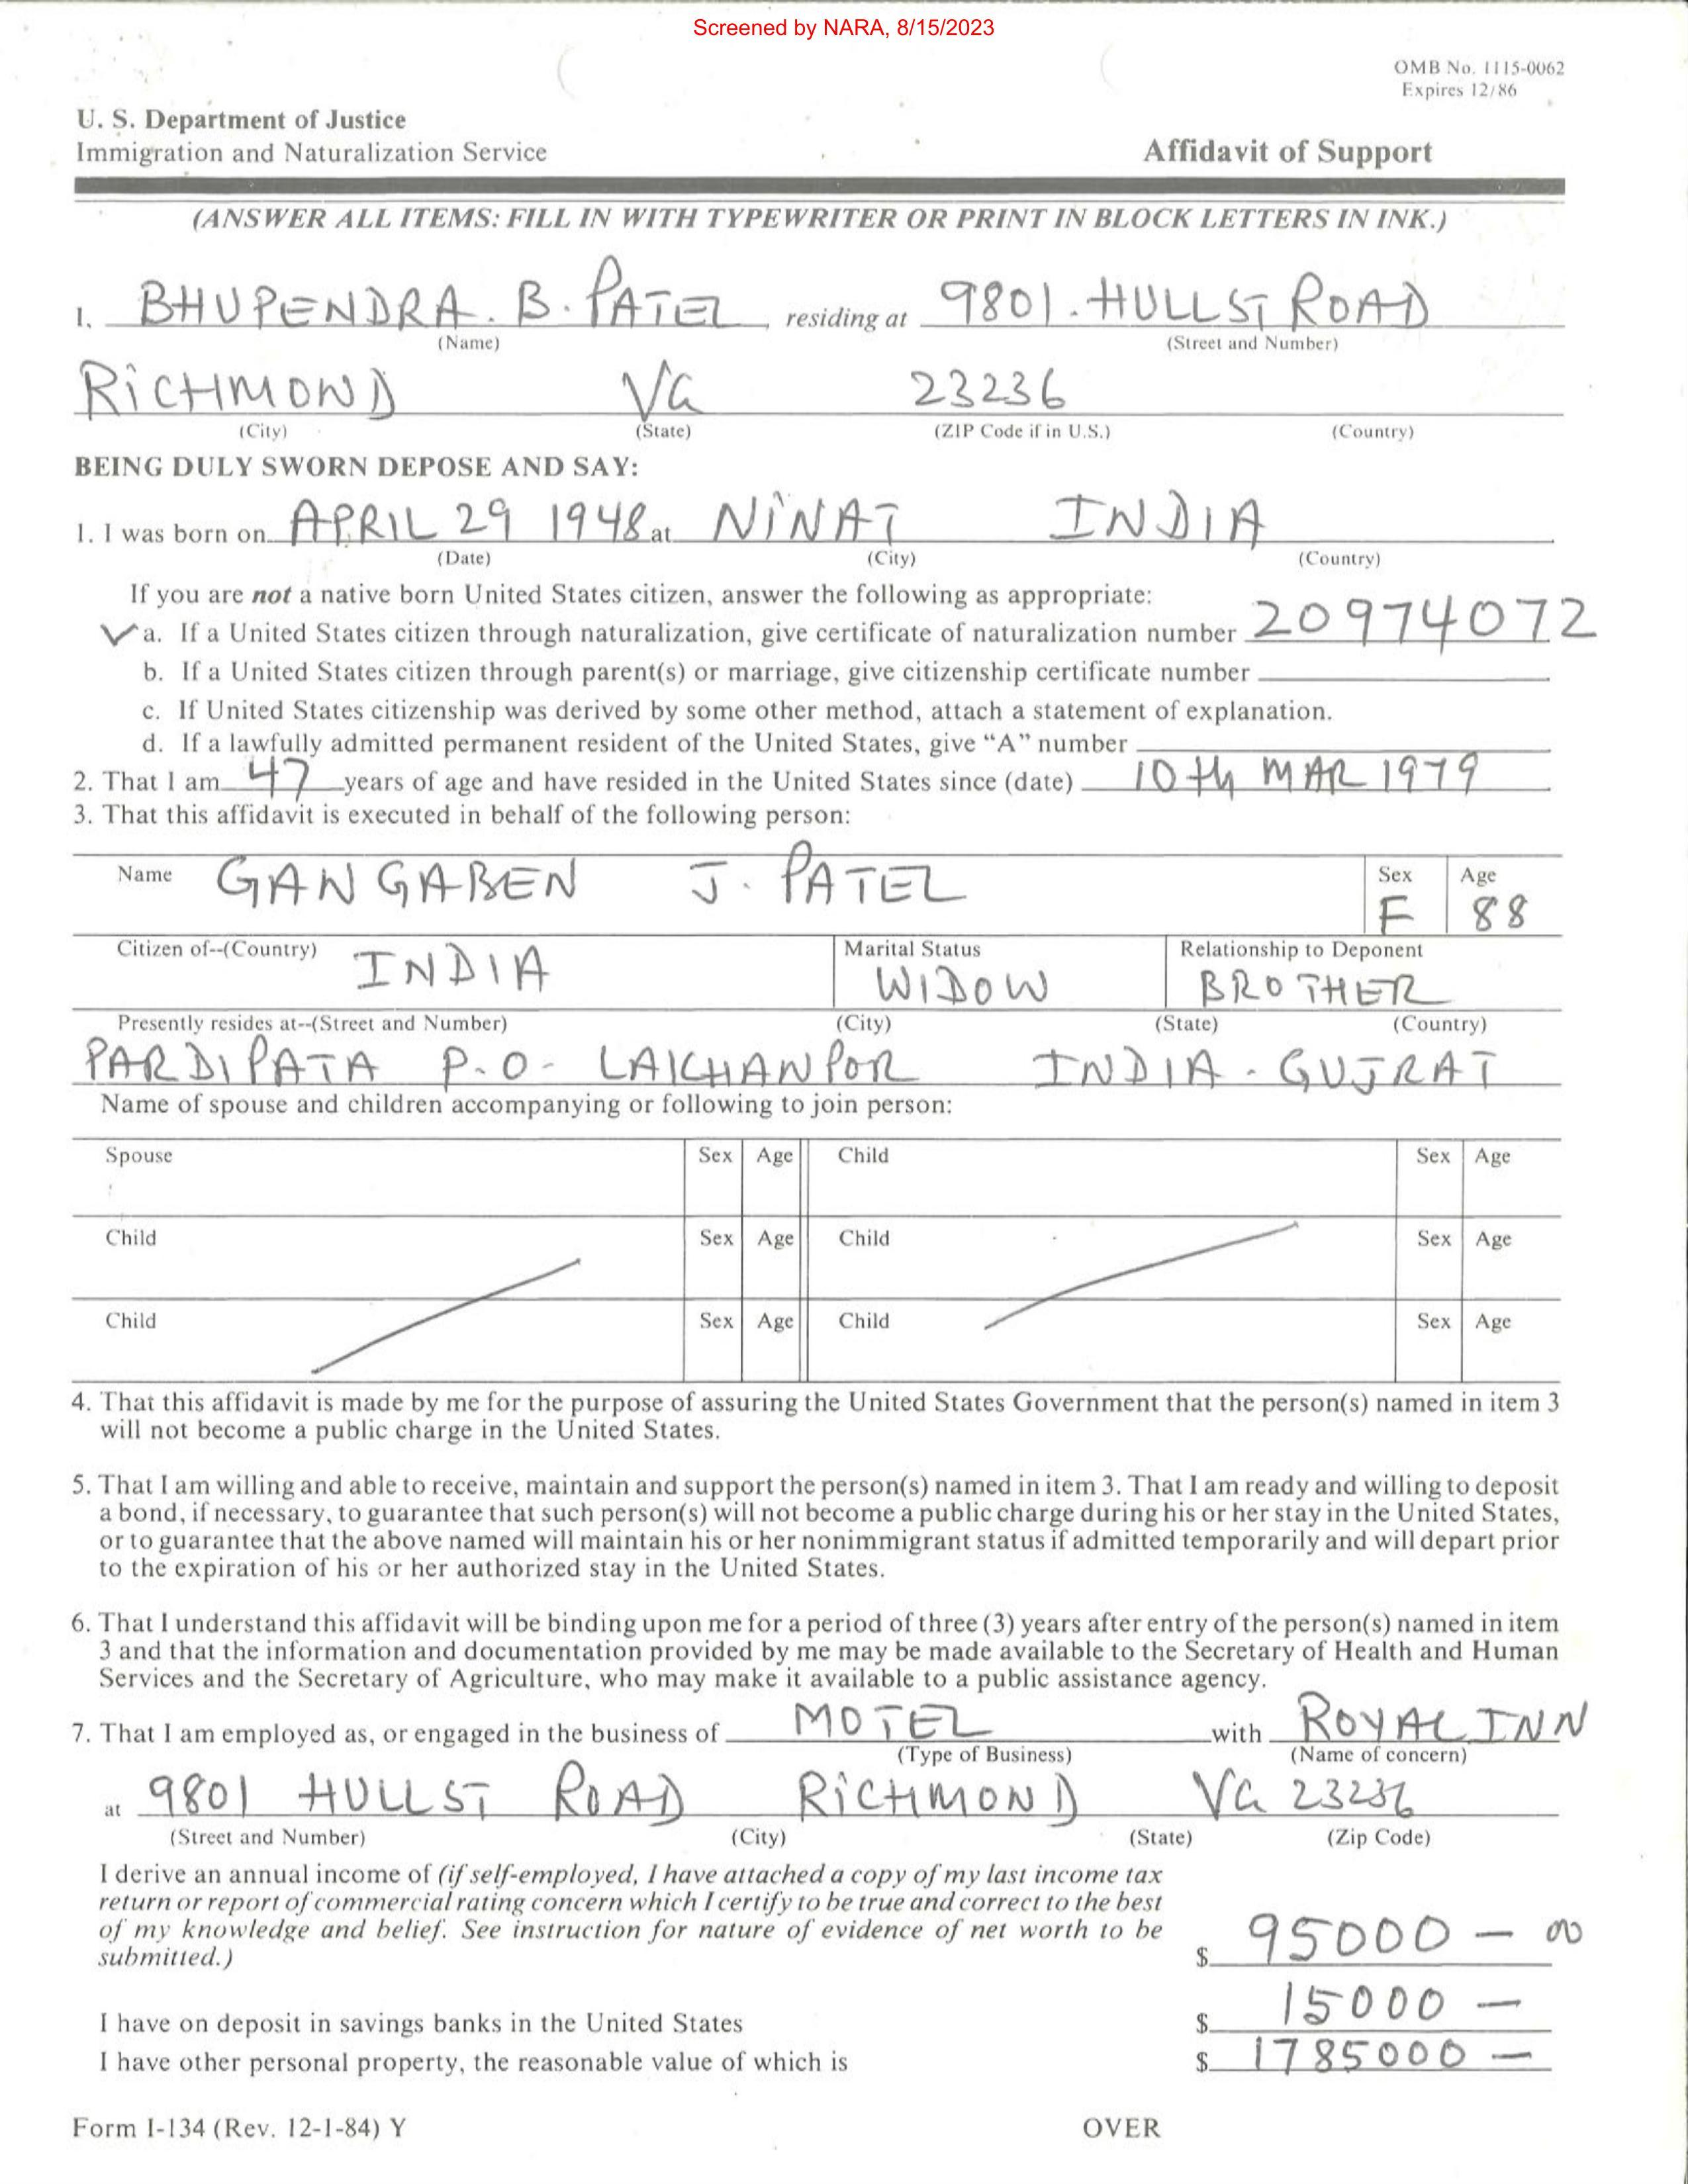 Screened by NARA, 8/15/2023
OMB No. 1115-0062
Expires 12/86
U. S. Department of Justice
Immigration and Naturalization Service
Affidavit of Support
(ANSWER ALL ITEMS: FILL IN WITH TYPEWRITER OR PRINT IN BLOCK LETTERS IN INK.)
1. BHUPENDRA. B. PATEL residing at 9801. HULLST ROAD
(Name) (Street and Number)
RICHMOND Va 23236
(City) (State) (ZIP Code if in U.S.) (Country)
BEING DULY SWORN DEPOSE AND SAY:
1. I was born on APRIL 29 1948 at NINAT INDIA
(Date) (City) (Country)
If you are not a native born United States citizen, answer the following as appropriate:
✓ a. If a United States citizen through naturalization, give certificate of naturalization number 20974072
b. If a United States citizen through parent(s) or marriage, give citizenship certificate number
c. If United States citizenship was derived by some other method, attach a statement of explanation.
d. If a lawfully admitted permanent resident of the United States, give “A” number
2. That I am 47 years of age and have resided in the United States since (date) 10th MAR 1979
3. That this affidavit is executed in behalf of the following person:
Name GANGABEN J. PATEL Sex F Age 88
Citizen of--(Country) INDIA Marital Status WIDOW Relationship to Deponent BROTHER
Presently resides at--(Street and Number) (City) (State) (Country)
PARDIPATA P.O- LAKHANPOR INDIA - GUJRAT
Name of spouse and children accompanying or following to join person:
Spouse Sex Age Child Sex Age
Child Sex Age Child Sex Age
Child Sex Age Child Sex Age
4. That this affidavit is made by me for the purpose of assuring the United States Government that the person(s) named in item 3
will not become a public charge in the United States.
5. That I am willing and able to receive, maintain and support the person(s) named in item 3. That I am ready and willing to deposit
a bond, if necessary, to guarantee that such person(s) will not become a public charge during his or her stay in the United States,
or to guarantee that the above named will maintain his or her nonimmigrant status if admitted temporarily and will depart prior
to the expiration of his or her authorized stay in the United States.
6. That I understand this affidavit will be binding upon me for a period of three (3) years after entry of the person(s) named in item
3 and that the information and documentation provided by me may be made available to the Secretary of Health and Human
Services and the Secretary of Agriculture, who may make it available to a public assistance agency.
7. That I am employed as, or engaged in the business of MOTEL with ROYAL INN
(Type of Business) (Name of concern)
at 9801 HULLST ROAD RICHMOND Va 23236
(Street and Number) (City) (State) (Zip Code)
I derive an annual income of (if self-employed, I have attached a copy of my last income tax
return or report of commercial rating concern which I certify to be true and correct to the best
of my knowledge and belief. See instruction for nature of evidence of net worth to be
submitted.) $ 95000 - 00
I have on deposit in savings banks in the United States $ 15000 -
I have other personal property, the reasonable value of which is $ 1785000 -
Form I-134 (Rev. 12-1-84) Y OVER